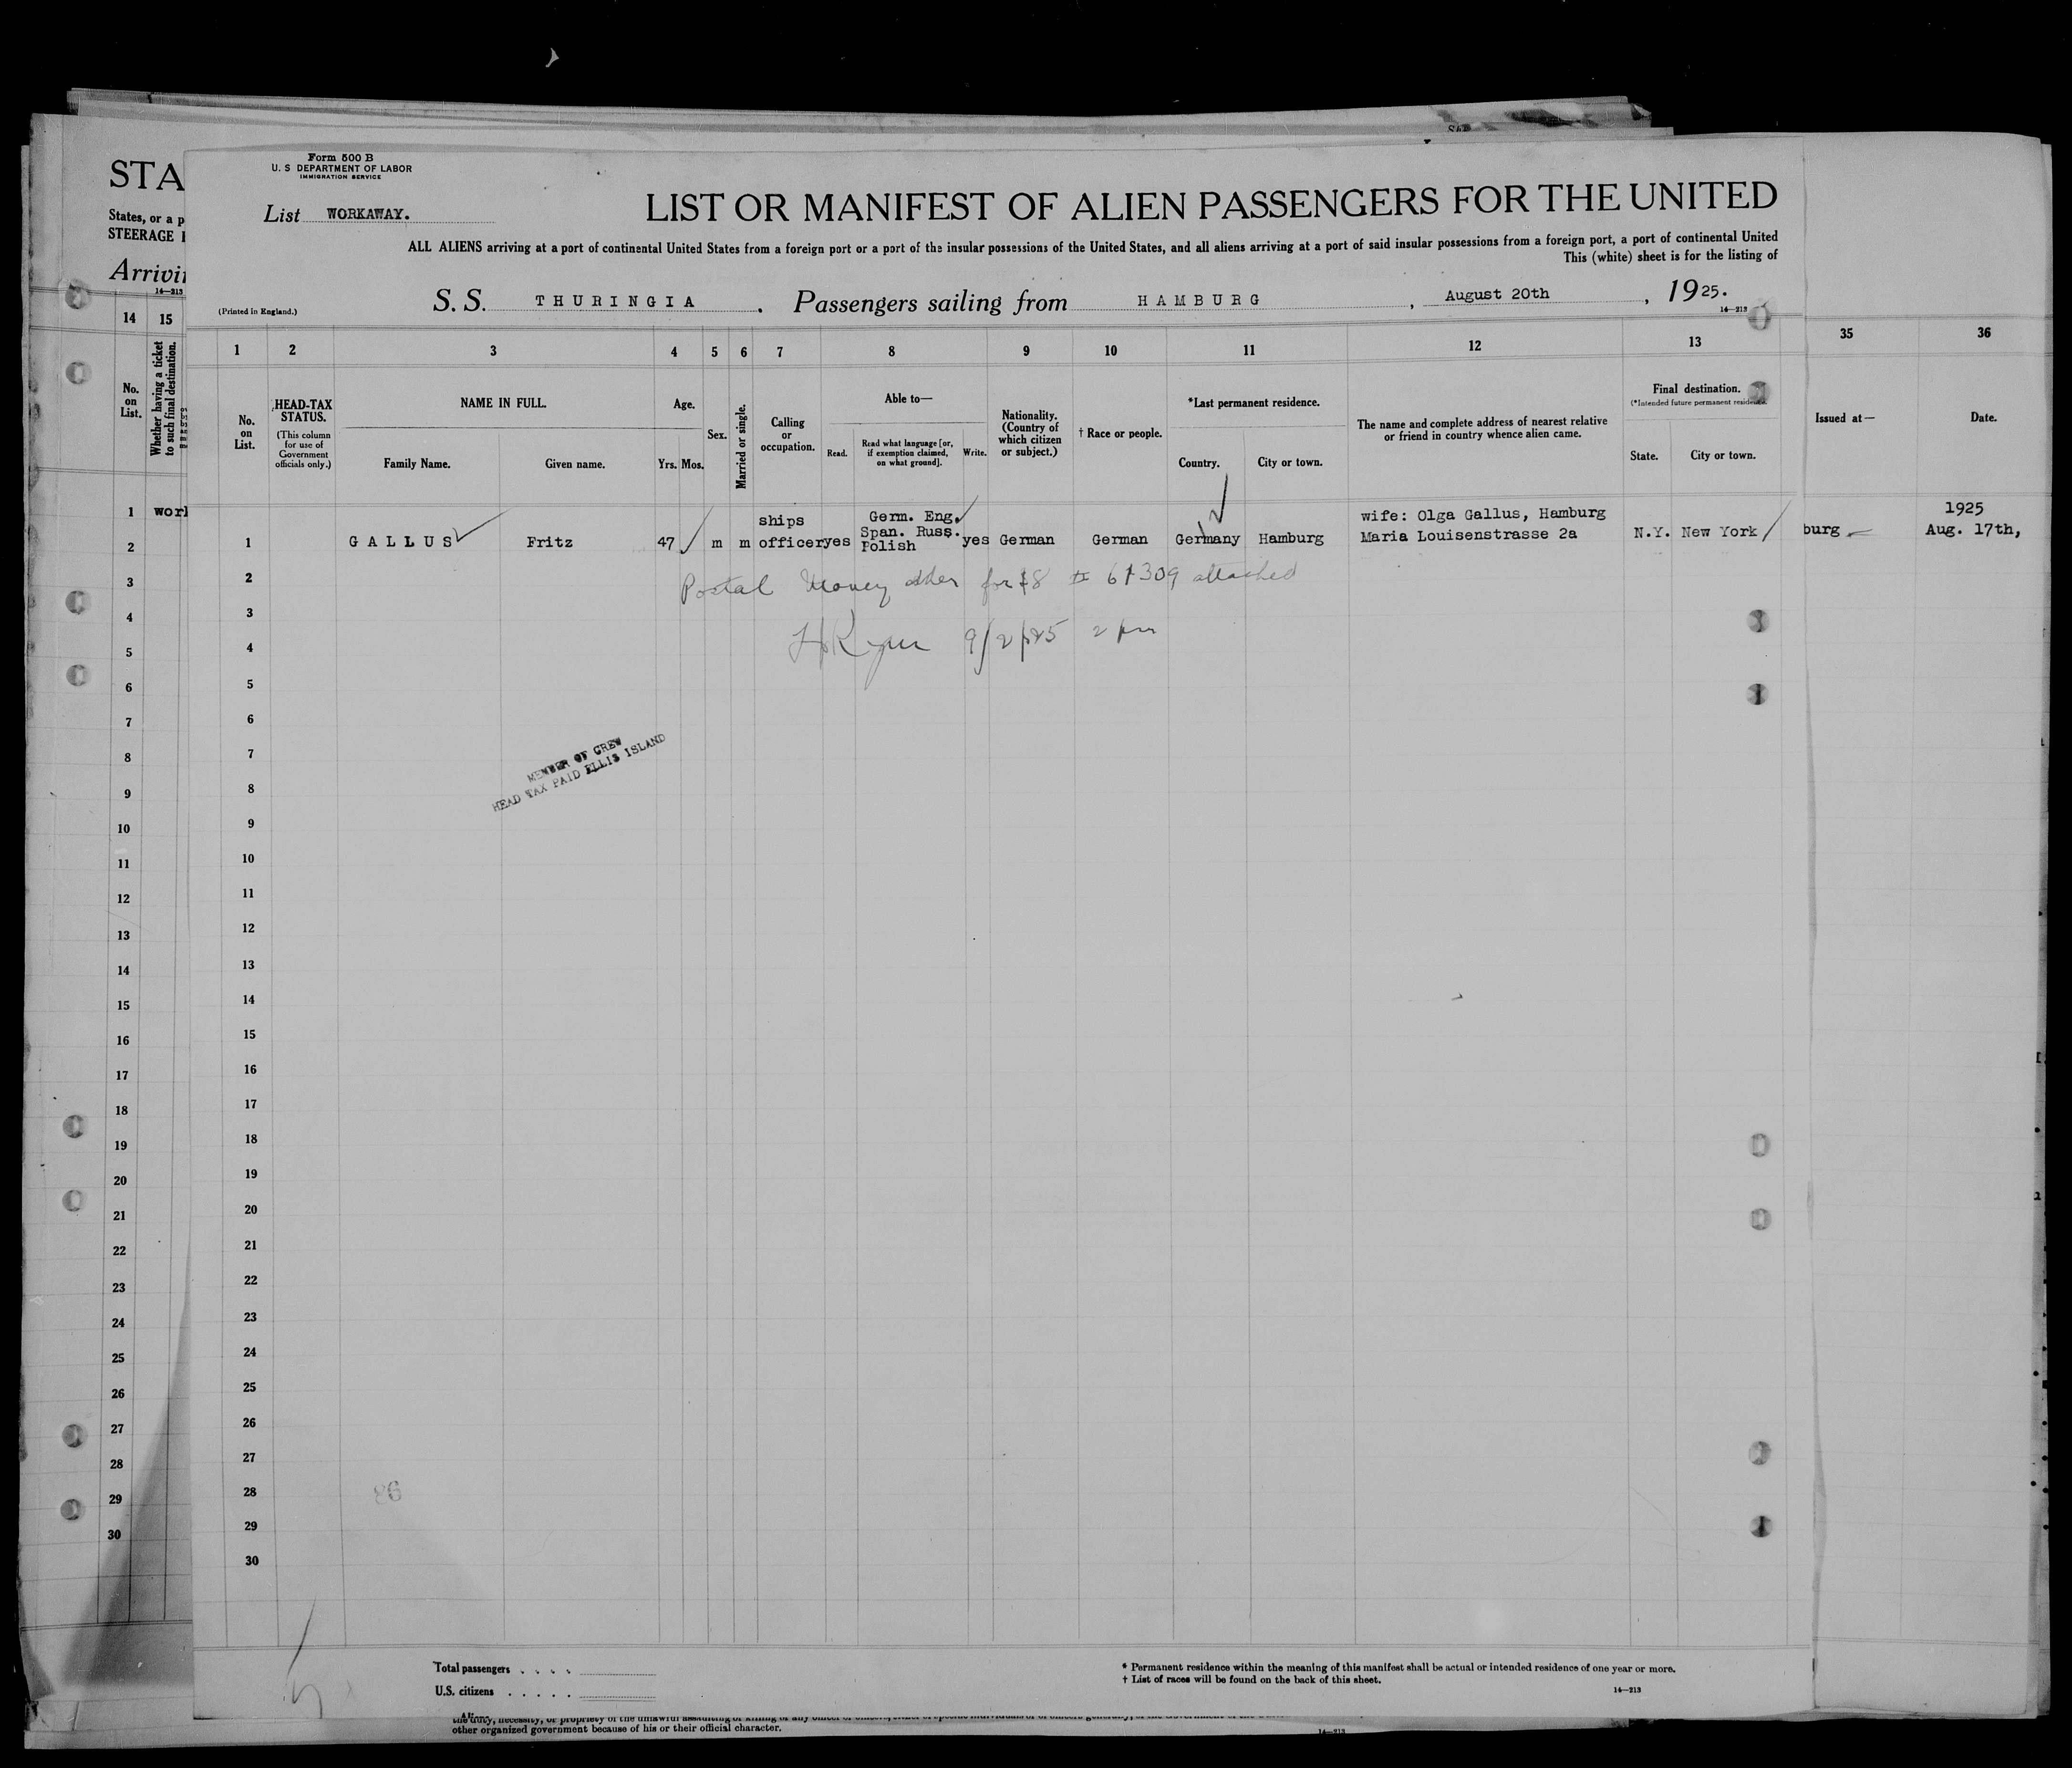 Form 500 B
U. S DEPARTMENT OF LABOR
IMMIGRATION SERVICE
STA
List WORKAWAY.
LIST OR MANIFEST OF ALIEN PASSENGERS FOR THE UNITED
States, or a p
STEERAGE
ALL ALIENS arriving at a port of continental United States from a foreign port or a port of the insular possessions of the United States, and all aliens arriving at a port of said insular possessions from a foreign port, a port of continental United
This (white) sheet is for the listing of
Arrivi
14—213
(Printed in England.)
S. S. THURINGIA. Passengers sailing from HAMBURG, August 20th, 1925.
14—213
14 15
1 2 3 4 5 6 7 8 9 10 11 12 13
35 36
No. on List.
Whether having a ticket to such final destination.
No. on List.
HEAD-TAX STATUS.
(This column for use of Government officials only.)
NAME IN FULL.
Family Name.
Given name.
Age.
Yrs. Mos.
Sex.
Married or single.
Calling or occupation.
Able to—
Read.
Read what language [or, if exemption claimed, on what ground].
Write.
Nationality. (Country of which citizen or subject.)
† Race or people.
*Last permanent residence.
Country.
City or town.
The name and complete address of nearest relative or friend in country whence alien came.
Final destination.
(*Intended future permanent residence.
State.
City or town.
Issued at—
Date.
1 GALLUS Fritz 47 m m ships officer yes Germ. Eng. Span. Russ. Polish yes German German Germany Hamburg wife: Olga Gallus, Hamburg Maria Louisenstrasse 2a N.Y. New York
burg
1925
Aug. 17th,
Postal Money order for $8 attached
9/2/25 2 pm
MEMBER OF CREW
HEAD TAX PAID ELLIS ISLAND
2
3
4
5
6
7
8
9
10
11
12
13
14
15
16
17
18
19
20
21
22
23
24
25
26
27
28
29
30
1 work
2
3
4
5
6
7
8
9
10
11
12
13
14
15
16
17
18
19
20
21
22
23
24
25
26
27
28
29
30
Total passengers . . . .
U.S. citizens . . . . .
* Permanent residence within the meaning of this manifest shall be actual or intended residence of one year or more.
† List of races will be found on the back of this sheet.
14—213
other organized government because of his or their official character.
14—213